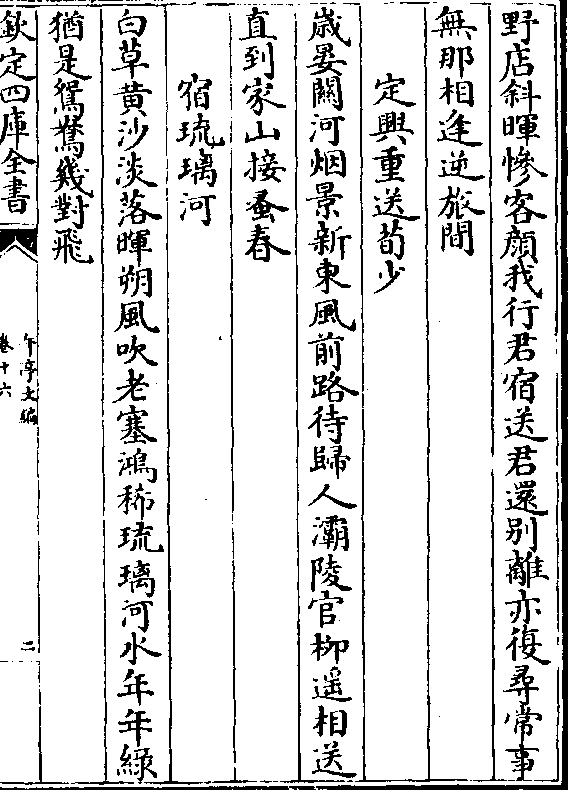 野店斜暉慘客顔我行君宿送君還别離亦復尋常事
無那相逢逆旅間
定興重送荀少
歳晏關河烟景新東風前路待歸人灞陵官柳遥相送
直到家山接蚤春
宿琉璃河
白草黄沙淡落暉朔風吹老塞鴻稀琉璃河水年年緑
猶是鴛鴦幾對飛
欽定四庫全書
午亭文編
卷十六
二